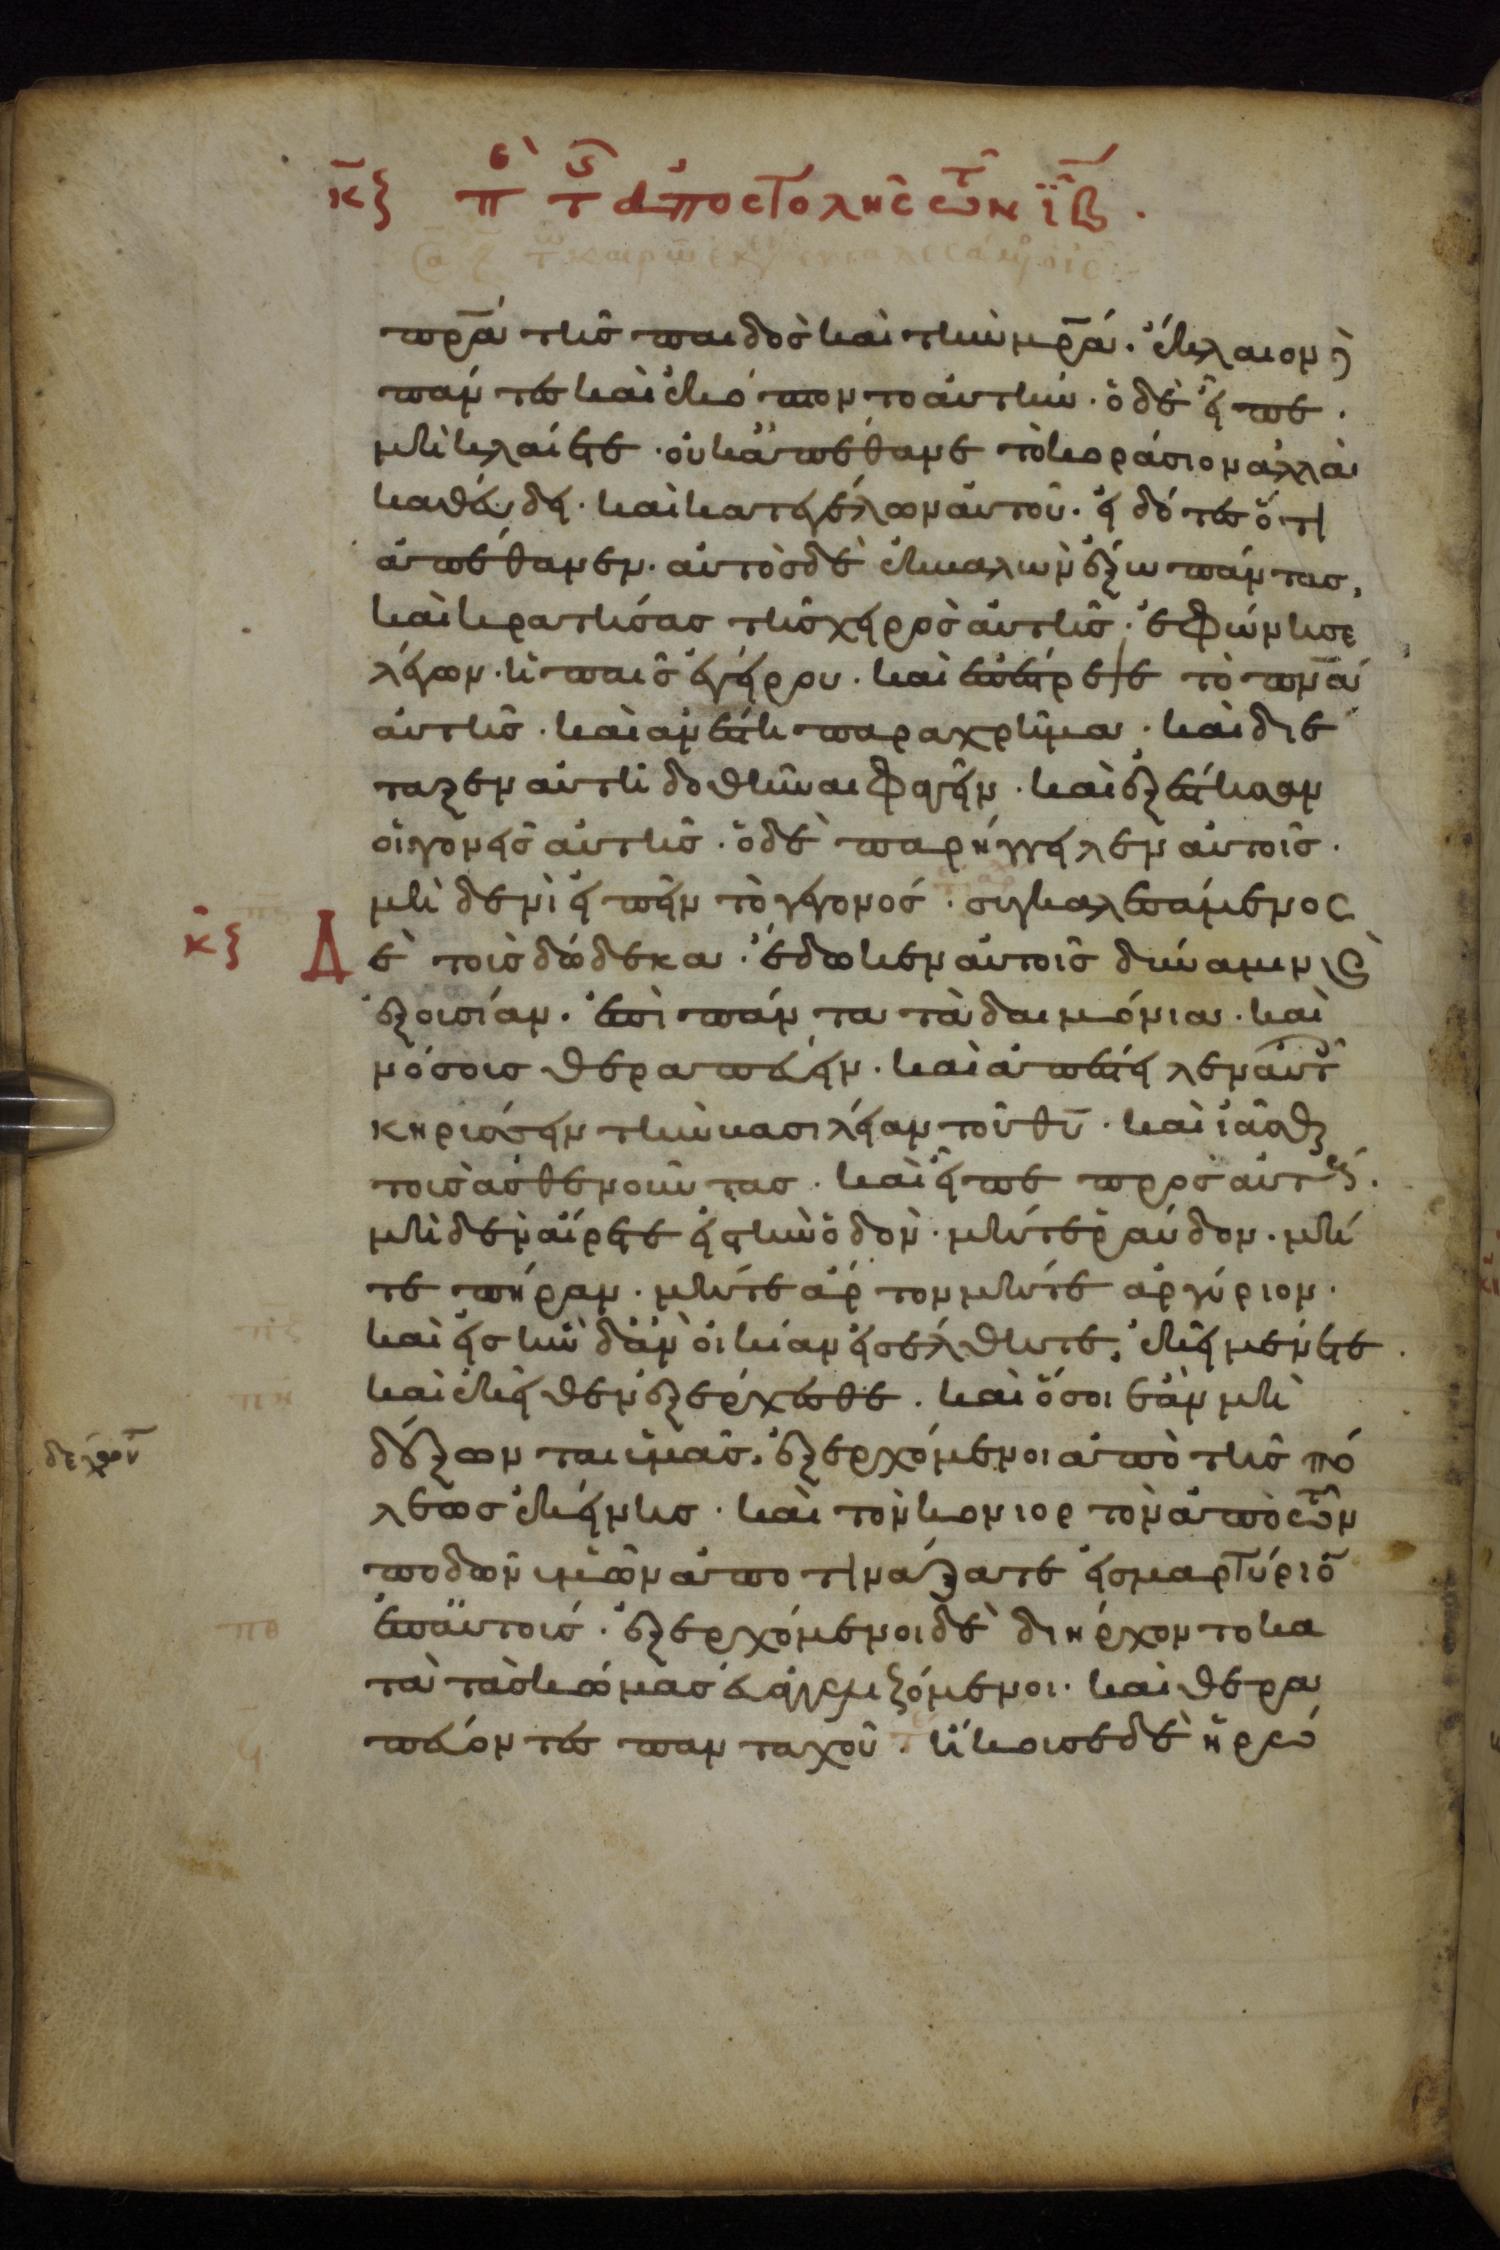 κζ πε τς ἀποστολῆς τῶν ιβ.
πρ̅α τῆς παιδὸς καὶ τὴν μρ̅α. ἔκλαιον δὲ
πάντες καὶ ἐκόπτοντο αὐτήν. ὁ δὲ εἶπε.
μὴ κλαίετε. οὐκ ἀπέθανε τὸ κοράσιον ἀλλὰ
καθεύδει. καὶ κατεγέλων αὐτοῦ. εἰδότες ὅτι
ἀπέθανεν. αὐτὸς δὲ ἐκβαλὼν ἔξω πάντας,
καὶ κρατήσας τῆς χειρὸς αὐτῆς. ἐφώνησε
λέγων. ἡ παῖς ἐγείρου. καὶ ἐπέστρεψε τὸ πν̅α
αὐτῆς. καὶ ἀνέστη παραχρῆμα. καὶ διέ
ταξεν αὐτῇ δοθῆναι φαγεῖν. καὶ ἐξέστησαν
οἱ γονεῖς αὐτῆς. ὁ δὲ παρήγγειλεν αὐτοῖς.
μηδενὶ εἰπεῖν τὸ γεγονός. συγκαλεσάμενος
κζ Δὲ τοὺς δώδεκα. ἔδωκεν αὐτοῖς δύναμιν καὶ
ἐξουσίαν. ἐπὶ πάντα τὰ δαιμόνια. καὶ
νόσους θεραπεύειν. καὶ ἀπέστειλεν αὐτοὺς
κηρύσσειν τὴν βασιλείαν τοῦ θυ̅. καὶ ἰᾶσθαι
τοὺς ἀσθενοῦντας. καὶ εἶπε πρὸς αὐτούς.
μηδὲν αἴρετε εἰς τὴν ὁδόν. μήτε ῥάβδον. μή
τε πήραν. μήτε ἄρτον μήτε ἀργύριον.
καὶ εἰς ἣν δ᾽ ἂν οἰκίαν εἰσέλθητε, ἐκεῖ μένετε.
καὶ ἐκεῖθεν ἐξέρχεσθε. καὶ ὅσοι ἐὰν μὴ
δέξωνται ὑμᾶς. ἐξερχόμενοι ἀπὸ τῆς πό
λεως ἐκείνης. καὶ τὸν κονιορτὸν ἀπὸ τῶν
ποδῶν ὑμῶν ἀποτινάξατε εἰς μαρτύριον
ἐπ᾽ αὐτούς. ἐξερχόμενοι δὲ διήρχοντο κα
τὰ τὰς κώμας εὐαγγελιζόμενοι. καὶ θερα
πεύοντες πανταχοῦ. ἤκουσε δὲ ἡρώ